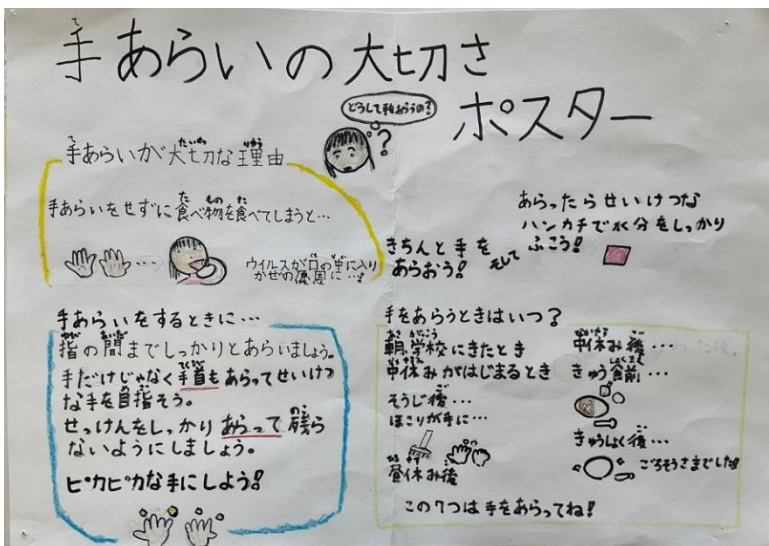 手あらいの大切さ
ポスター
どうして手あらうの?
?
手あらいが大切な理由
手あらいをせずに食べ物を食べてしまうと…
ウイルスが口の中に入り
かぜの原因に…!
きちんと手を
あらおう!
そして
あらったらせいけつな
ハンカチで水分をしっかり
ふこう!
手あらいをするときに…
指の間までしっかりとあらいましょう。
手だけじゃなく手首もあらってせいけつ
な手を目指そう。
せっけんをしっかりあらって残ら
ないようにしましょう。
ピカピカな手にしよう!
手をあらうときはいつ?
朝学校にきたとき
中休みがはじまるとき
そうじ後…
ほこりが手に…
昼休み後
中休み後…
きゅう食前…
きゅうしょく後…
ごちそうさまでした!
この7つは手をあらってね!